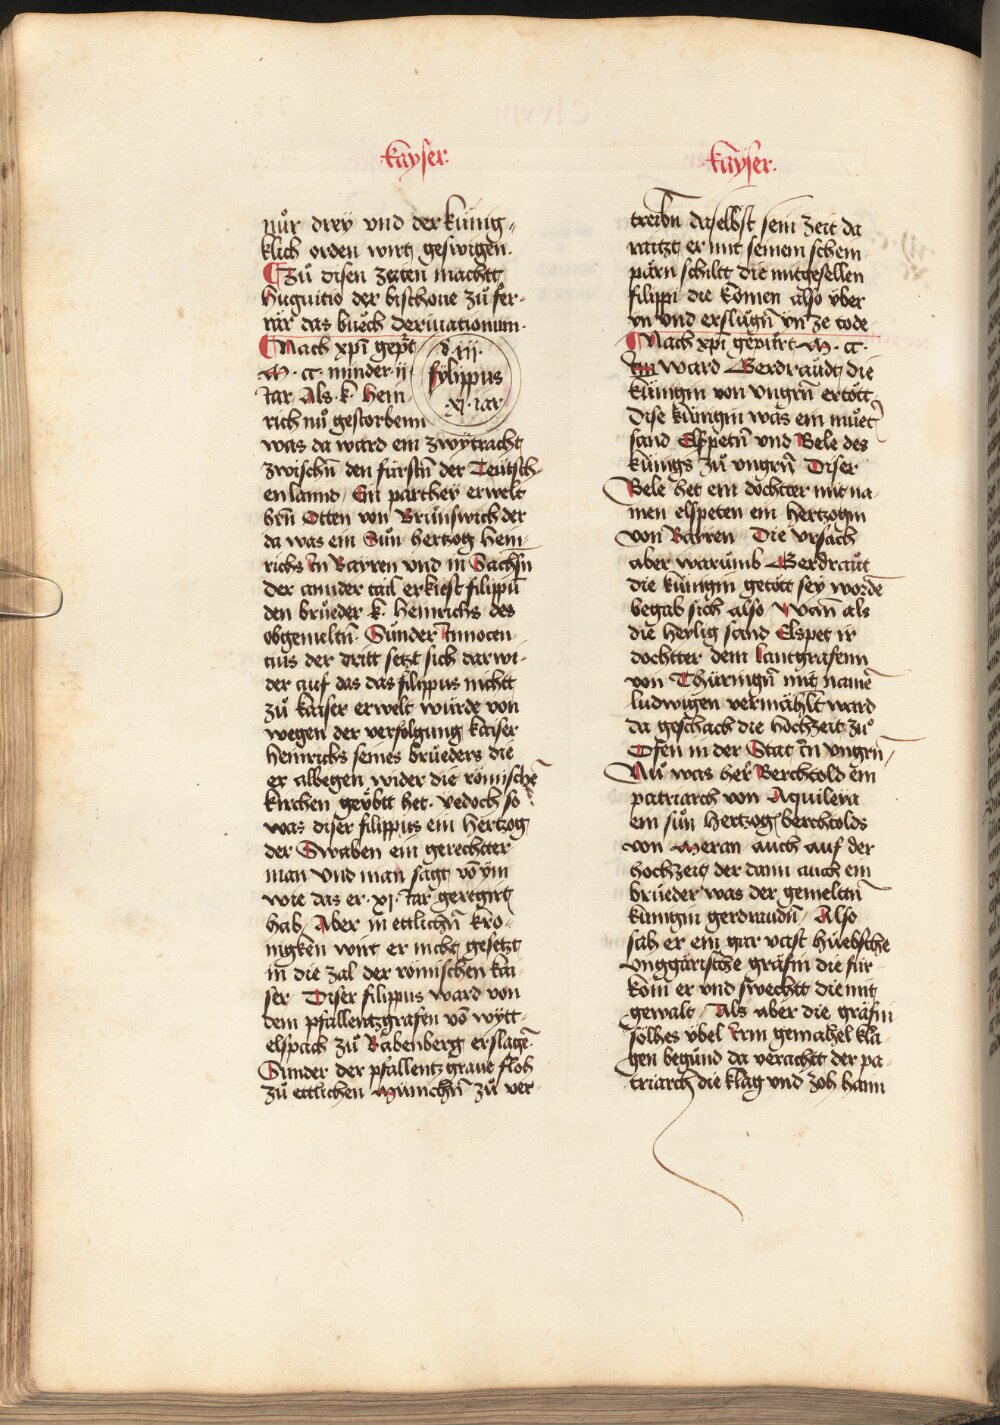 kayser.
nůr dreÿ vnd der kűnig-
klich orden wirt geswigen.
Zů disen zeiten machtt
Huguitio der bischoue zů fer-
rär das bůech deriuationum.
Nach xp̄i gepůrt
M. cc. minder ii
Iar Als k. Hein-
rich nů gestorbenn
d. iii.
fÿlippus
xi. iar
was da ward ein zwÿtracht
zwischn̄ den fürstn̄ der Teütsch-
en lannd / Ein partheÿ erwelt
hrn̄ Otten von Brůnswich der
da was ein Sůn hertzog Hein-
richs In Barren und in Sachsn̄
der annder tail erkiest filippū
den brůeder k. Heinrichs des
obgemeltn̄. Sůnder Innocen-
cius der dritt setzt sich darwi-
der auf das das filippus nichtt
zů kaiser erwelt würde von
wegen der verfolgung kaiser
Heinrichs seines brůeders die
er albegen wider die römischē
kirchen geÿbtt het. yedoch so
was diser filippus ein Hertzog
der Swaben ein gerechtter
man Vnd man sagt vō ÿm
wie das er. xi. Iar geregirt
hab / Aber in ettlichn̄ kro-
nigken wirt er nicht gesetzt
in die zal der römischen kai-
ser Diser filippus ward von
dem pfallentzgrafen vō wÿtt-
elspach zů Babenberg erslagē.
Sunder der pfallentzgraue floh
zů ettlichen Münichn̄ zů ver-
kayser.
treibn daselbst sein zeit da
raitzt er mit seinem schem-
parn schiltt die mitgesellen
filippi die komen also vber
yn vnd erslůgn̄ yn ze tode
Nach xp̄i gepůrt M. cc.
Im ward Gerdraůdt die
künigin von Vngrn̄ ertött.
Dise künigin was ein můet
sand Elspetn̄ vnd Bele des
künigs zů vngrn̄ Diser
Bele het ein dochtter mit na-
men elspeten ein Hertzogin
von Barren Die vrsach
aber warůmb Gerdraůt
die künigin getött seÿ wordē
begab sich also / Wan̄ als
die heÿlig sand Elspet ir
dochtter dem lanntgrafenn
von Thüringn̄ mit namē
ludwigen vermählt ward
da geschach die hochzeit zů
Ofen in der Stat In vngrn̄ /
Nů was her Berchtold ein
patriarch von Aquileia
ein sůn Hertzog berchtolds
von Meran auch auf der
hochzeit der dann auch ein
brůeder was der gemeltn̄
künigin gerdraudn̄ / Also
sah er ein gar vast hüebsche
vnggärische gräfin die für-
kom er vnd swechtt die mit
gewalt / Als aber die gräfin
sölhes vbel Irm gemahel kla-
gen begund da verachtt der pa-
triarch die klag vnd zoh hann